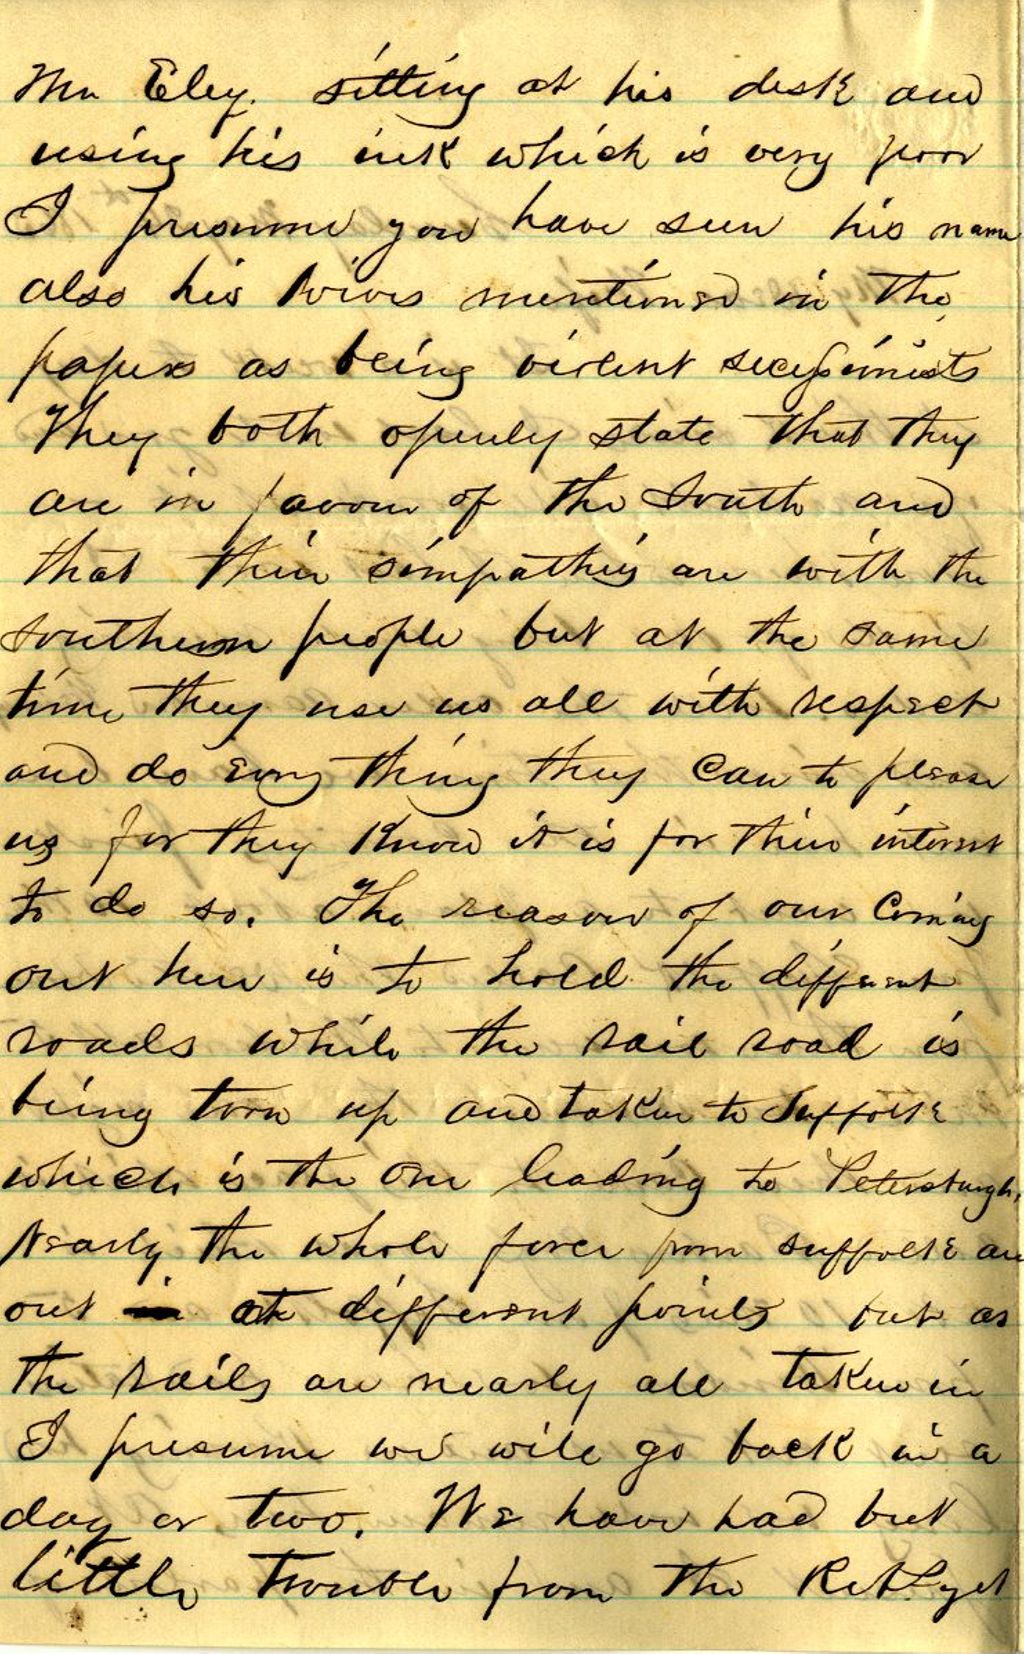 Mr Eley. sitting at his desk and
using his ink which is very poor
I presume you have seen his name
also his wives mentioned in the
papers as being violent secessionists
They both openly state that they
are in favour of the South and
that their simpathies are with the
Southern people but at the same
time they use us all with respect
and do every thing they can to please
us for they know it is for their interest
to do so. The reason of our coming
out here is to hold the different
roads while the rail road is
being torn up and taken to Suffolk
which is the one leading to Petersburgh.
Nearly the whole force from Suffolk are
out at different points but as
the rails are nearly all taken in
I presume we will go back in a
day or two. We have had but
little trouble from the Rebs yet